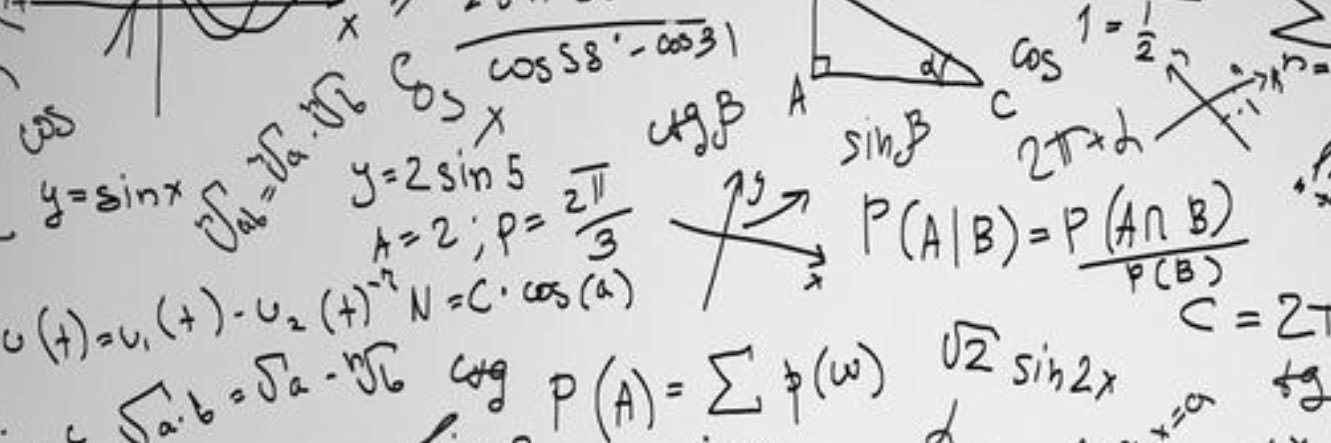 x
cos58° - cos31
A
C
α
cos 1 = 1/2
cos
ⁿ√ab = ⁿ√a · ⁿ√b
x
ctgβ
sinβ
2π+α
y=sinx
y=2sin5
A=2; P= 2π/3
y
x
P(A|B) = P(A∩B)/P(B)
υ(t)=υ₁(t)-υ₂(t)⁻ⁿ
N=C·cos(a)
C = 2π
√a·b = √a - ⁿ√b
ctg
P(A) = ∑ p(ω)
√2 sin2x
tg
x=a